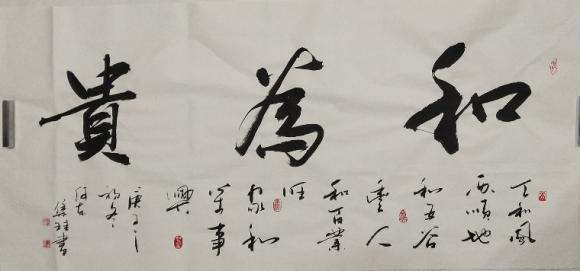 和為貴
天和風
雨順地
和五谷
豐人
和百業
旺
家和
萬事
興
庚子之
初冬
書